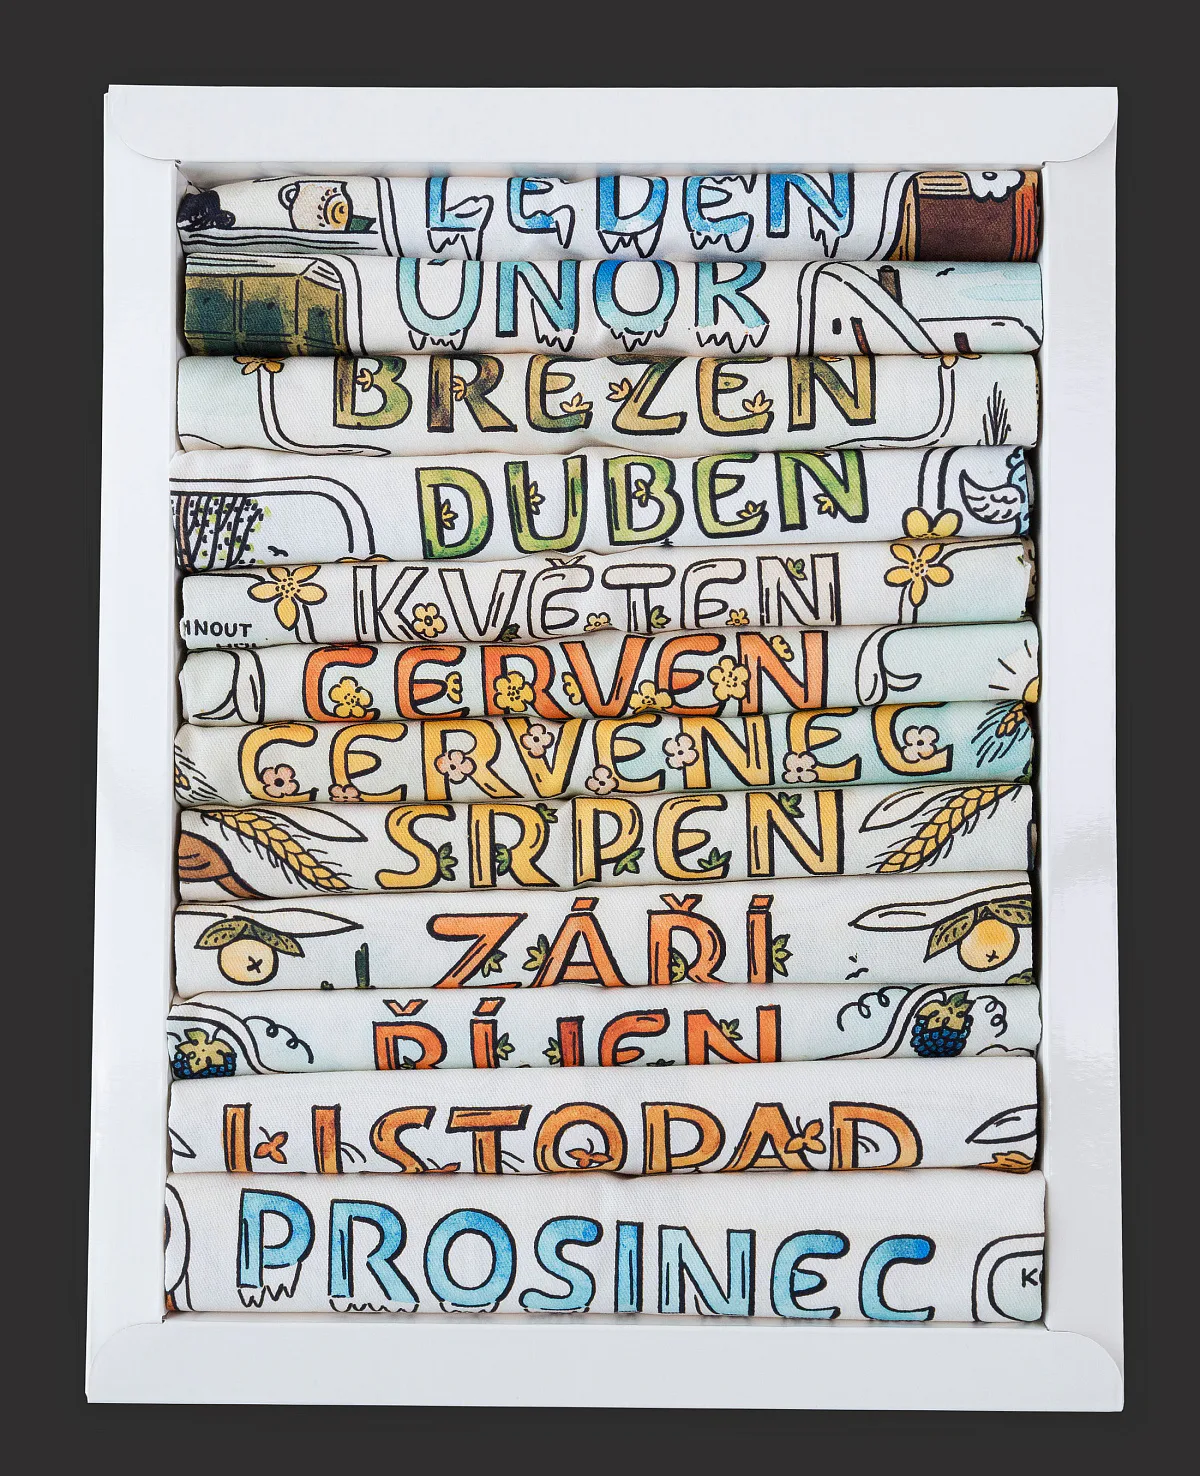 LEDEN
ÚNOR
BŘEZEN
DUBEN
KVĚTEN
HNOUT
ČERVEN
ČERVENEC
SRPEN
ZÁŘÍ
ŘÍJEN
LISTOPAD
PROSINEC